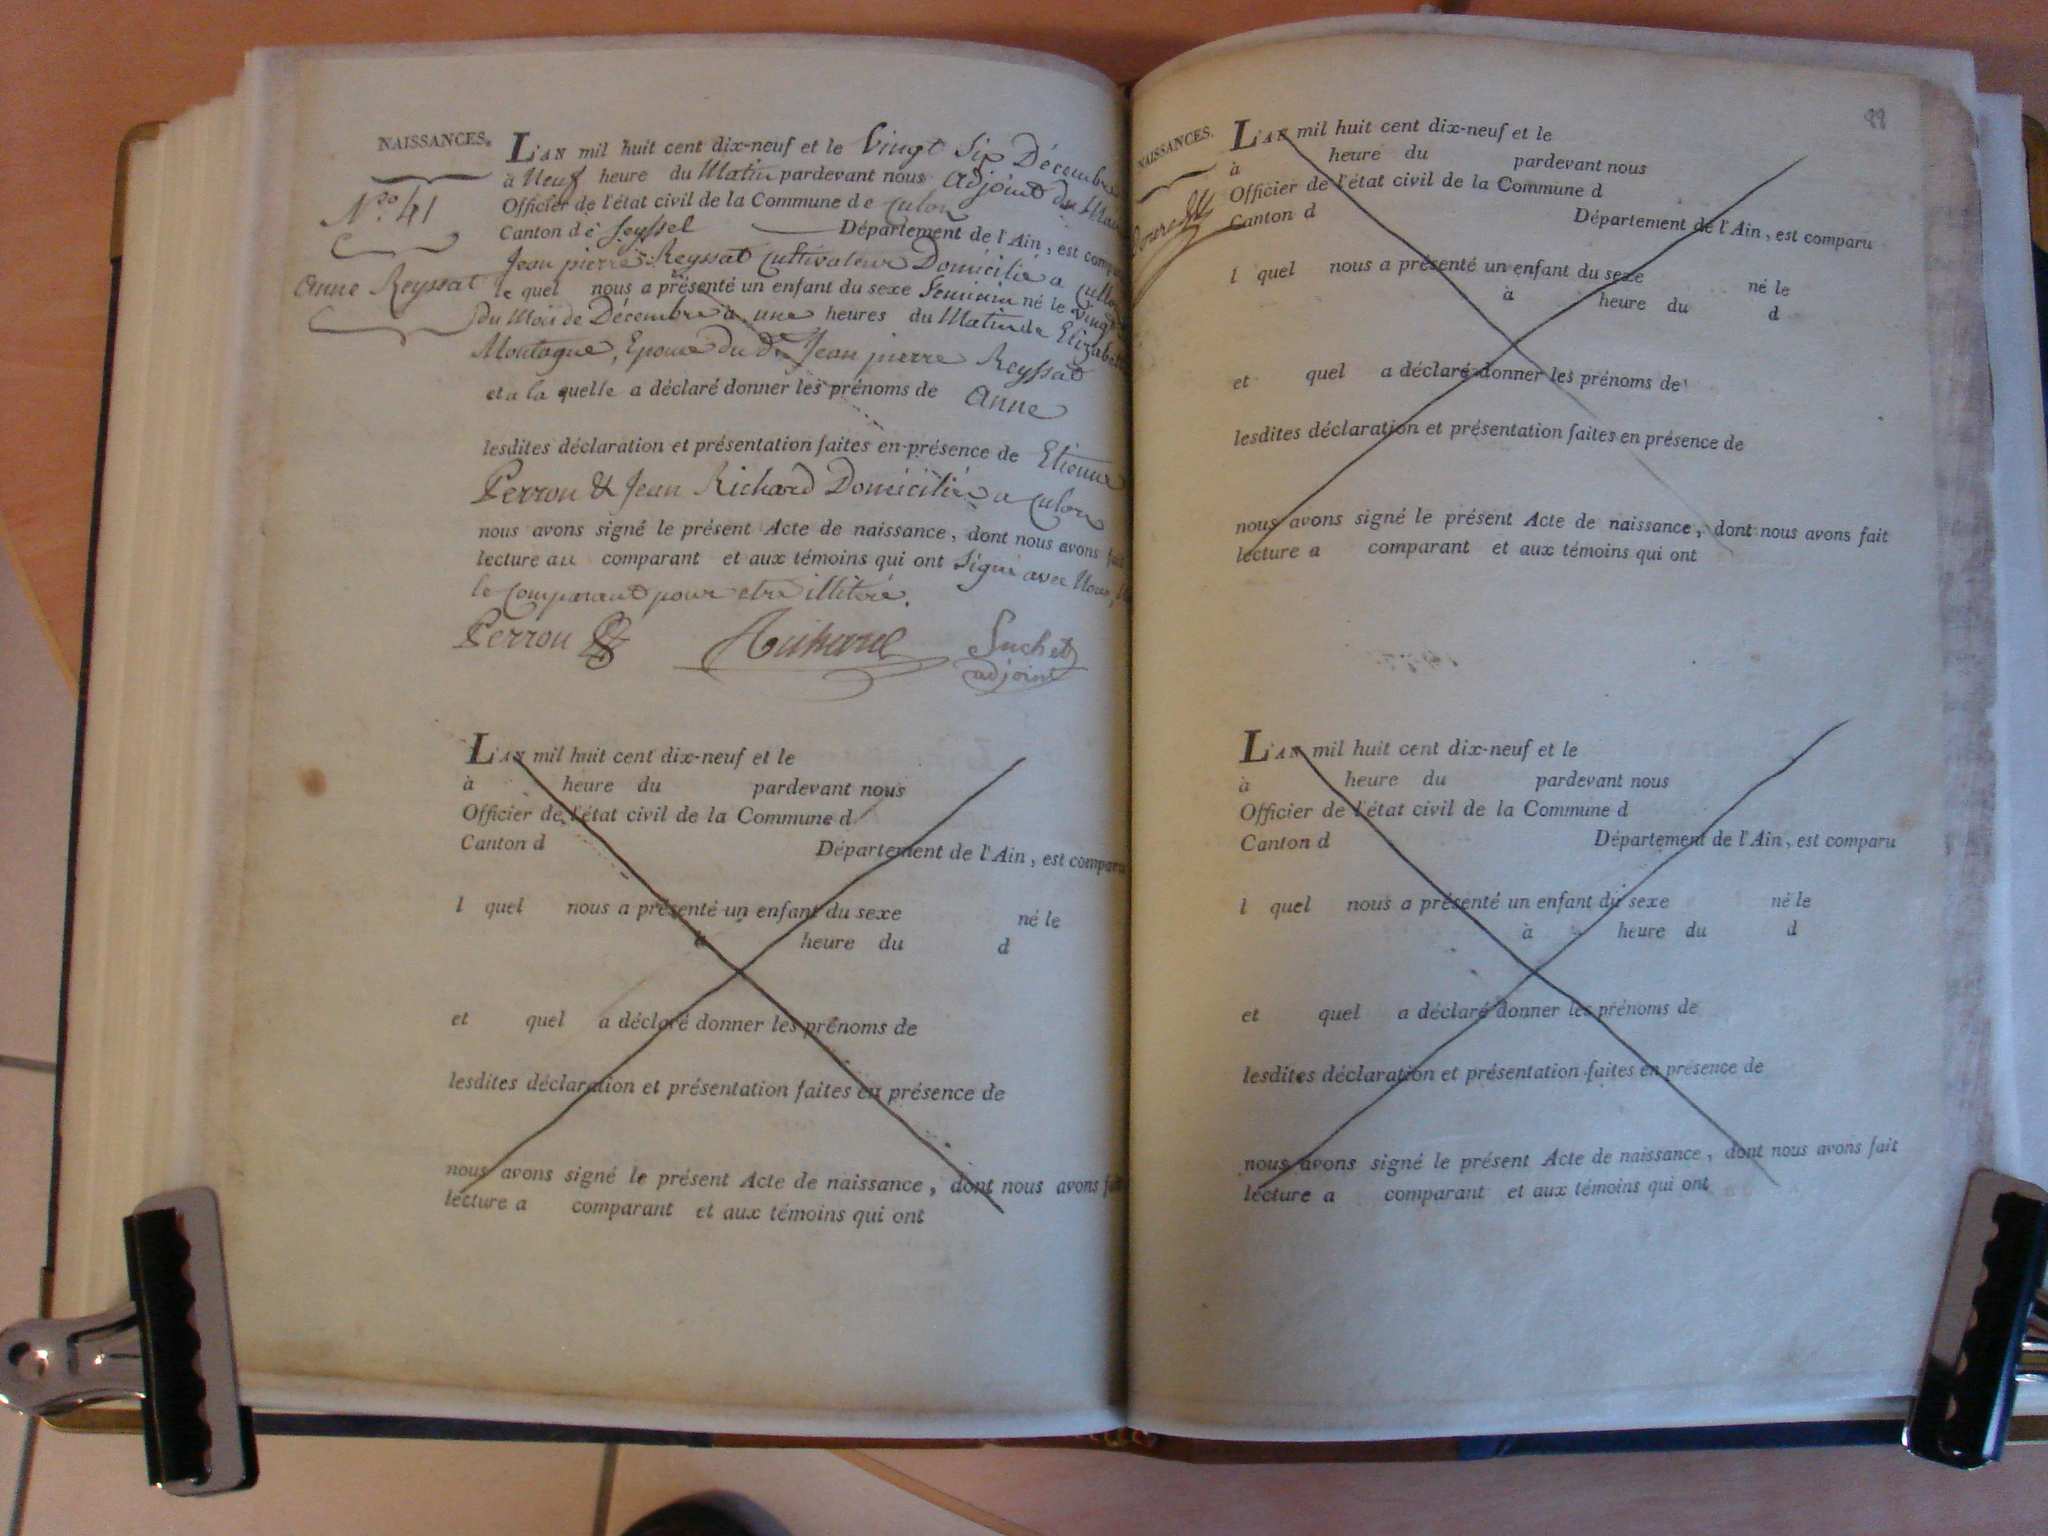 NAISSANCES.
N.ro 41
Anne Reyssat
L'AN mil huit cent dix-neuf et le Vingt Six Décembre
à Neuf heure du Matin pardevant nous adjoint du
Officier de l'état civil de la Commune de Culoz
Canton de Seyssel Département de l'Ain, est
Jean pierre Reyssat Cultivateur Domicilié a
le quel nous a présenté un enfant du sexe feminin né le
du Mois de Décembre à une heures du Matin de
Montagne, Epouse du dt Jean pierre Reyssat
et a la quelle a déclaré donner les prénoms de Anne
lesdites déclaration et présentation faites en présence de Etienne
Perron & Jean Richard Domiciliés a Culoz
nous avons signé le présent Acte de naissance, dont nous avons
lecture au comparant et aux témoins qui ont Signé avec Nous,
le Comparant pour etre illitéré.
Perron Richard Suchet
adjoint
L'AN mil huit cent dix-neuf et le
à heure du pardevant nous
Officier de l'état civil de la Commune d
Canton d Département de l'Ain, est comparu
l quel nous a présenté un enfant du sexe né le
à heure du d
et quel a déclaré donner les prénoms de
lesdites déclaration et présentation faites en présence de
nous avons signé le présent Acte de naissance, dont nous avons
lecture a comparant et aux témoins qui ont
NAISSANCES.
L'AN mil huit cent dix-neuf et le
à heure du pardevant nous
Officier de l'état civil de la Commune d
Canton d Département de l'Ain, est comparu
l quel nous a présenté un enfant du sexe né le
à heure du d
et quel a déclaré donner les prénoms de
lesdites déclaration et présentation faites en présence de
nous avons signé le présent Acte de naissance, dont nous avons fait
lecture a comparant et aux témoins qui ont
L'AN mil huit cent dix-neuf et le
à heure du pardevant nous
Officier de l'état civil de la Commune d
Canton d Département de l'Ain, est comparu
l quel nous a présenté un enfant du sexe né le
à heure du d
et quel a déclaré donner les prénoms de
lesdites déclaration et présentation faites en présence de
nous avons signé le présent Acte de naissance, dont nous avons fait
lecture a comparant et aux témoins qui ont